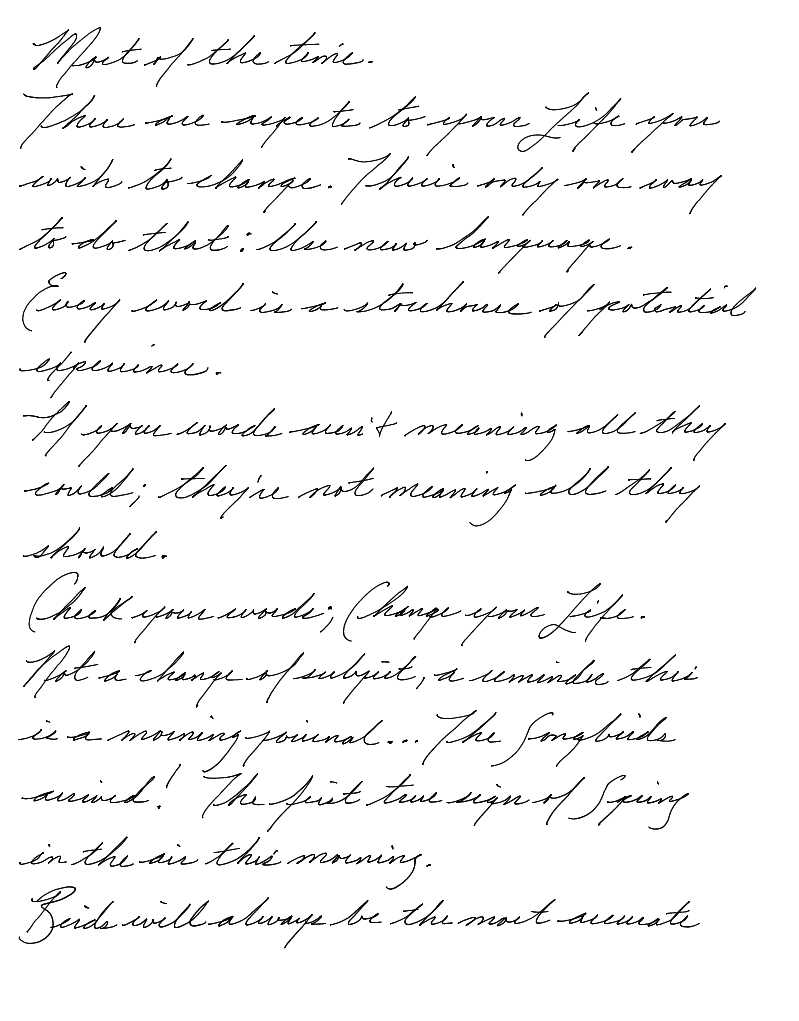 Most of the time.
There are aspects to your Life you
wish to change. There's only one way
to do that: Use new language.
Every word is a storehouse of potential
experience.
If your words aren't meaning all they
could; they're not meaning all they
should.
Check your words; Change your Life.
Not a change of subject, a reminder this
is a morning journal... The Songbirds
arrived! The first true sign of Spring
in the air this morning.
Birds will always be the most accurate